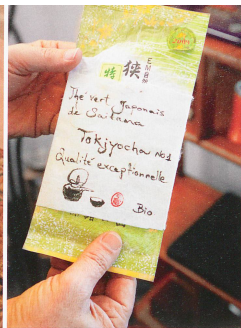 特 狭
Thé vert Japonais
de Saitama
Tokjyocha No1
Qualité exceptionnelle
Bio